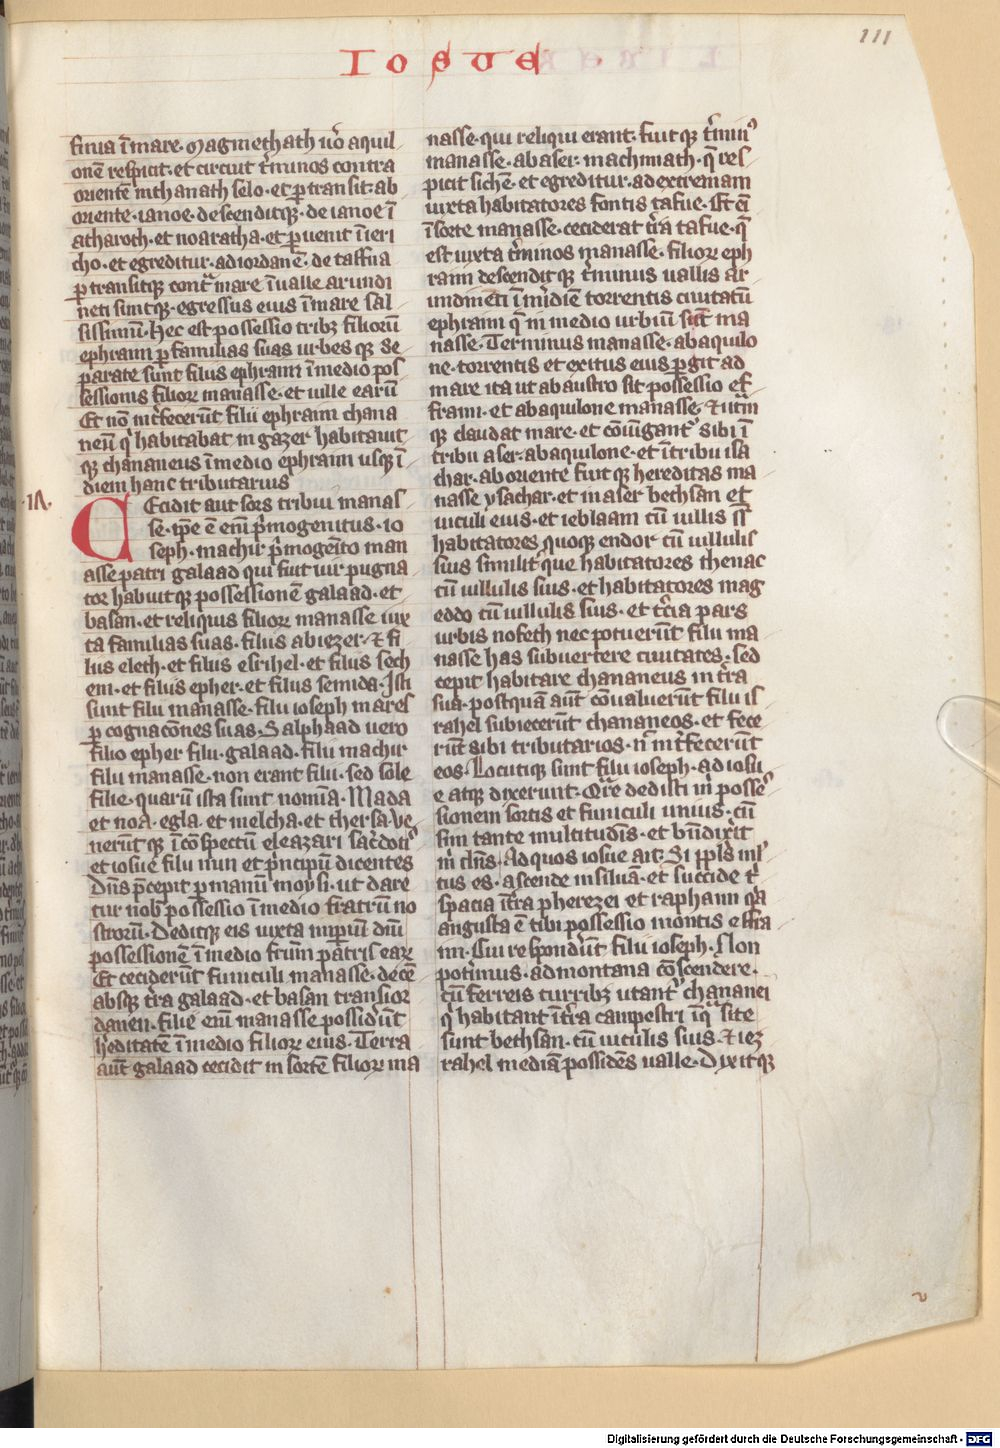 111
IOSVE
finia ī mare. Magmethath ūo aquil
onē respicit. et circuit t̄minos contra
orientē in thanath selo. et ꝑ transit. ab
oriente. ianoe. descenditqȝ. de ianoe ī
atharoth. et noaratha. et ꝑuenit ī ieri
cho. et egreditur. ad iordanē. de taffua
ꝑ transitqȝ contͣ mare ī ualle arundi
neti suntqȝ. egressus eius ī mare sal
sissimū. Hec est possessio tribȝ filiorū
ephraim ꝑ familias suas urbes qȝ se
parate sunt filiis ephraim ī medio pos
sessionis filioꝝ manasse. et uille earū
Et nō int̄fecerūt filii ephraim chana
neū qͥ habitabat in gazer habitauit
qȝ chananeus ī medio ephraim usqȝ ī
diem hanc tributarius
Cecidit aut sors tribui manas
se. ip̄e ē eni pͥmogenitus. io
seph. machir pͥmogeīto man
asse patri galaad qui fuit uir pugna
tor habuitqȝ possessionē galaad. et
basan. et reliquis filioꝝ manasse iux
ta familias suas. filiis abiezer. et fi
liis elech. et filiis esrihel. et filiis sech
em. et filiis epher. et filiis semida. Isti
sunt filii manasse. filii ioseph mares
ꝑ cognacōnes suas. Salphaad uero
filio epher filii. galaad. filii machir
filii manasse. non erant filii. sed sole
filie. quarū ista sunt nomīa. Mada
et noa. egla. et melcha. et thersa. ve
nerūt qȝ ī cōspectū eleazari sac̄dotiˢ
et iosue filii nun et pͥncipū dicentes
Dn̄s p̄cepit ꝑ manū moysi. ut dare
tur nob possessio ī medio fratrū no
strorū. Deditqȝ eis iuxta imꝑiū dn̄i
possessionē ī medio frūm patris eaꝝ
Et ceciderūt funiculi manasse. decē
absqȝ t̄ra galaad. et basan transior
danen. filie enī manasse possid̄unt
h̄editatē ī medio filioꝝ eius. Terra
aūt galaad cecidit in sortē filioꝝ ma
nasse. qui reliqui erant. fuit qȝ t̄minꝰ
manasse. ab aser. machmath. q̄ res
picit sichē. et egreditur. ad extremam
iuxta habitatores fontis tafue. Et eī
ī sorte manasse. ceciderat t̄ra tafue. q̄
est iuxta t̄minos manasse. filioꝝ eph
raim descenditqȝ t̄minus uallis ar
undineti ī m̄idiē torrentis ciuitatū
ephraim q̄ in medio urbiū sūt ma
nasse. Terminus manasse. ab aquilo
ne. torrentis et exitus eius ꝑgit ad
mare ita ut ab austro sit possessio ef
fraim. et ab aquilone manasse. et utͣm
qȝ claudat mare. et cōiūgantʳ sibi ī
tribu aser. ab aquilone. et ī tribu isa
char. ab oriente fuit qȝ hereditas ma
nasse ysachar. et in aser bethsan et
uiculi eius. et ieblaam cū uillis ss
habitatores quoqȝ endor cū uillulis
suis similitͥ que habitatores thenac
cū uillulis suis. et habitatores mag
eddo cū uillulis suis. et t̄cia pars
urbis nofeth nec potuerūt filii ma
nasse has subuertere ciuitates. sed
cepit habitare chananeus in t̄ra
sua. postquā aūt cōualuerūt filii is
rahel subiecerūt chananeos. et fece
rūt sibi tributarios. nͨ int̄fecerūt
eos. Locutiqȝ sunt filii ioseph. ad iosu
e atqȝ dixerunt. Qͣre dedisti m̄ posse
sionem sortis et funiculi unius. cū
sim tante multitudīs. et bn̄dixit
m̄ dn̄s. Ad quos iosue ait. Si ppls ml̄
tus es. ascende in siluā. et succide tͥ
spacia īt̄ra pherezei et raphaim qͥa
angusta ē tibi possessio montis effra
im. Cui respond̄ūt filii ioseph. Non
pot̄imus. ad montana cōscendere.
cū ferreis curribȝ utantʳ chananei
qͥ habitant īt̄ra campestri ī qͣ site
sunt bethsan. cū uiculis suis. et iez
rahel mediā possidēs ualle. Dixitqȝ
Digitalisierung gefördert durch die Deutsche Forschungsgemeinschaft - DFG